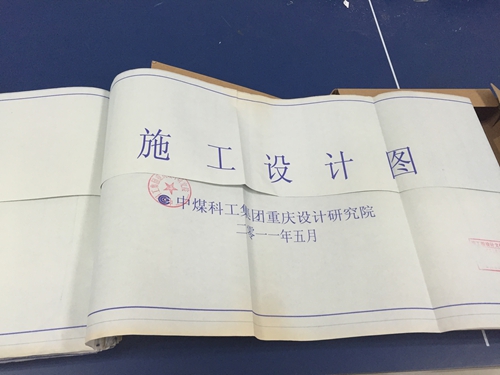 施工设计图
中煤科工集团重庆设计研究院
二零一一年五月